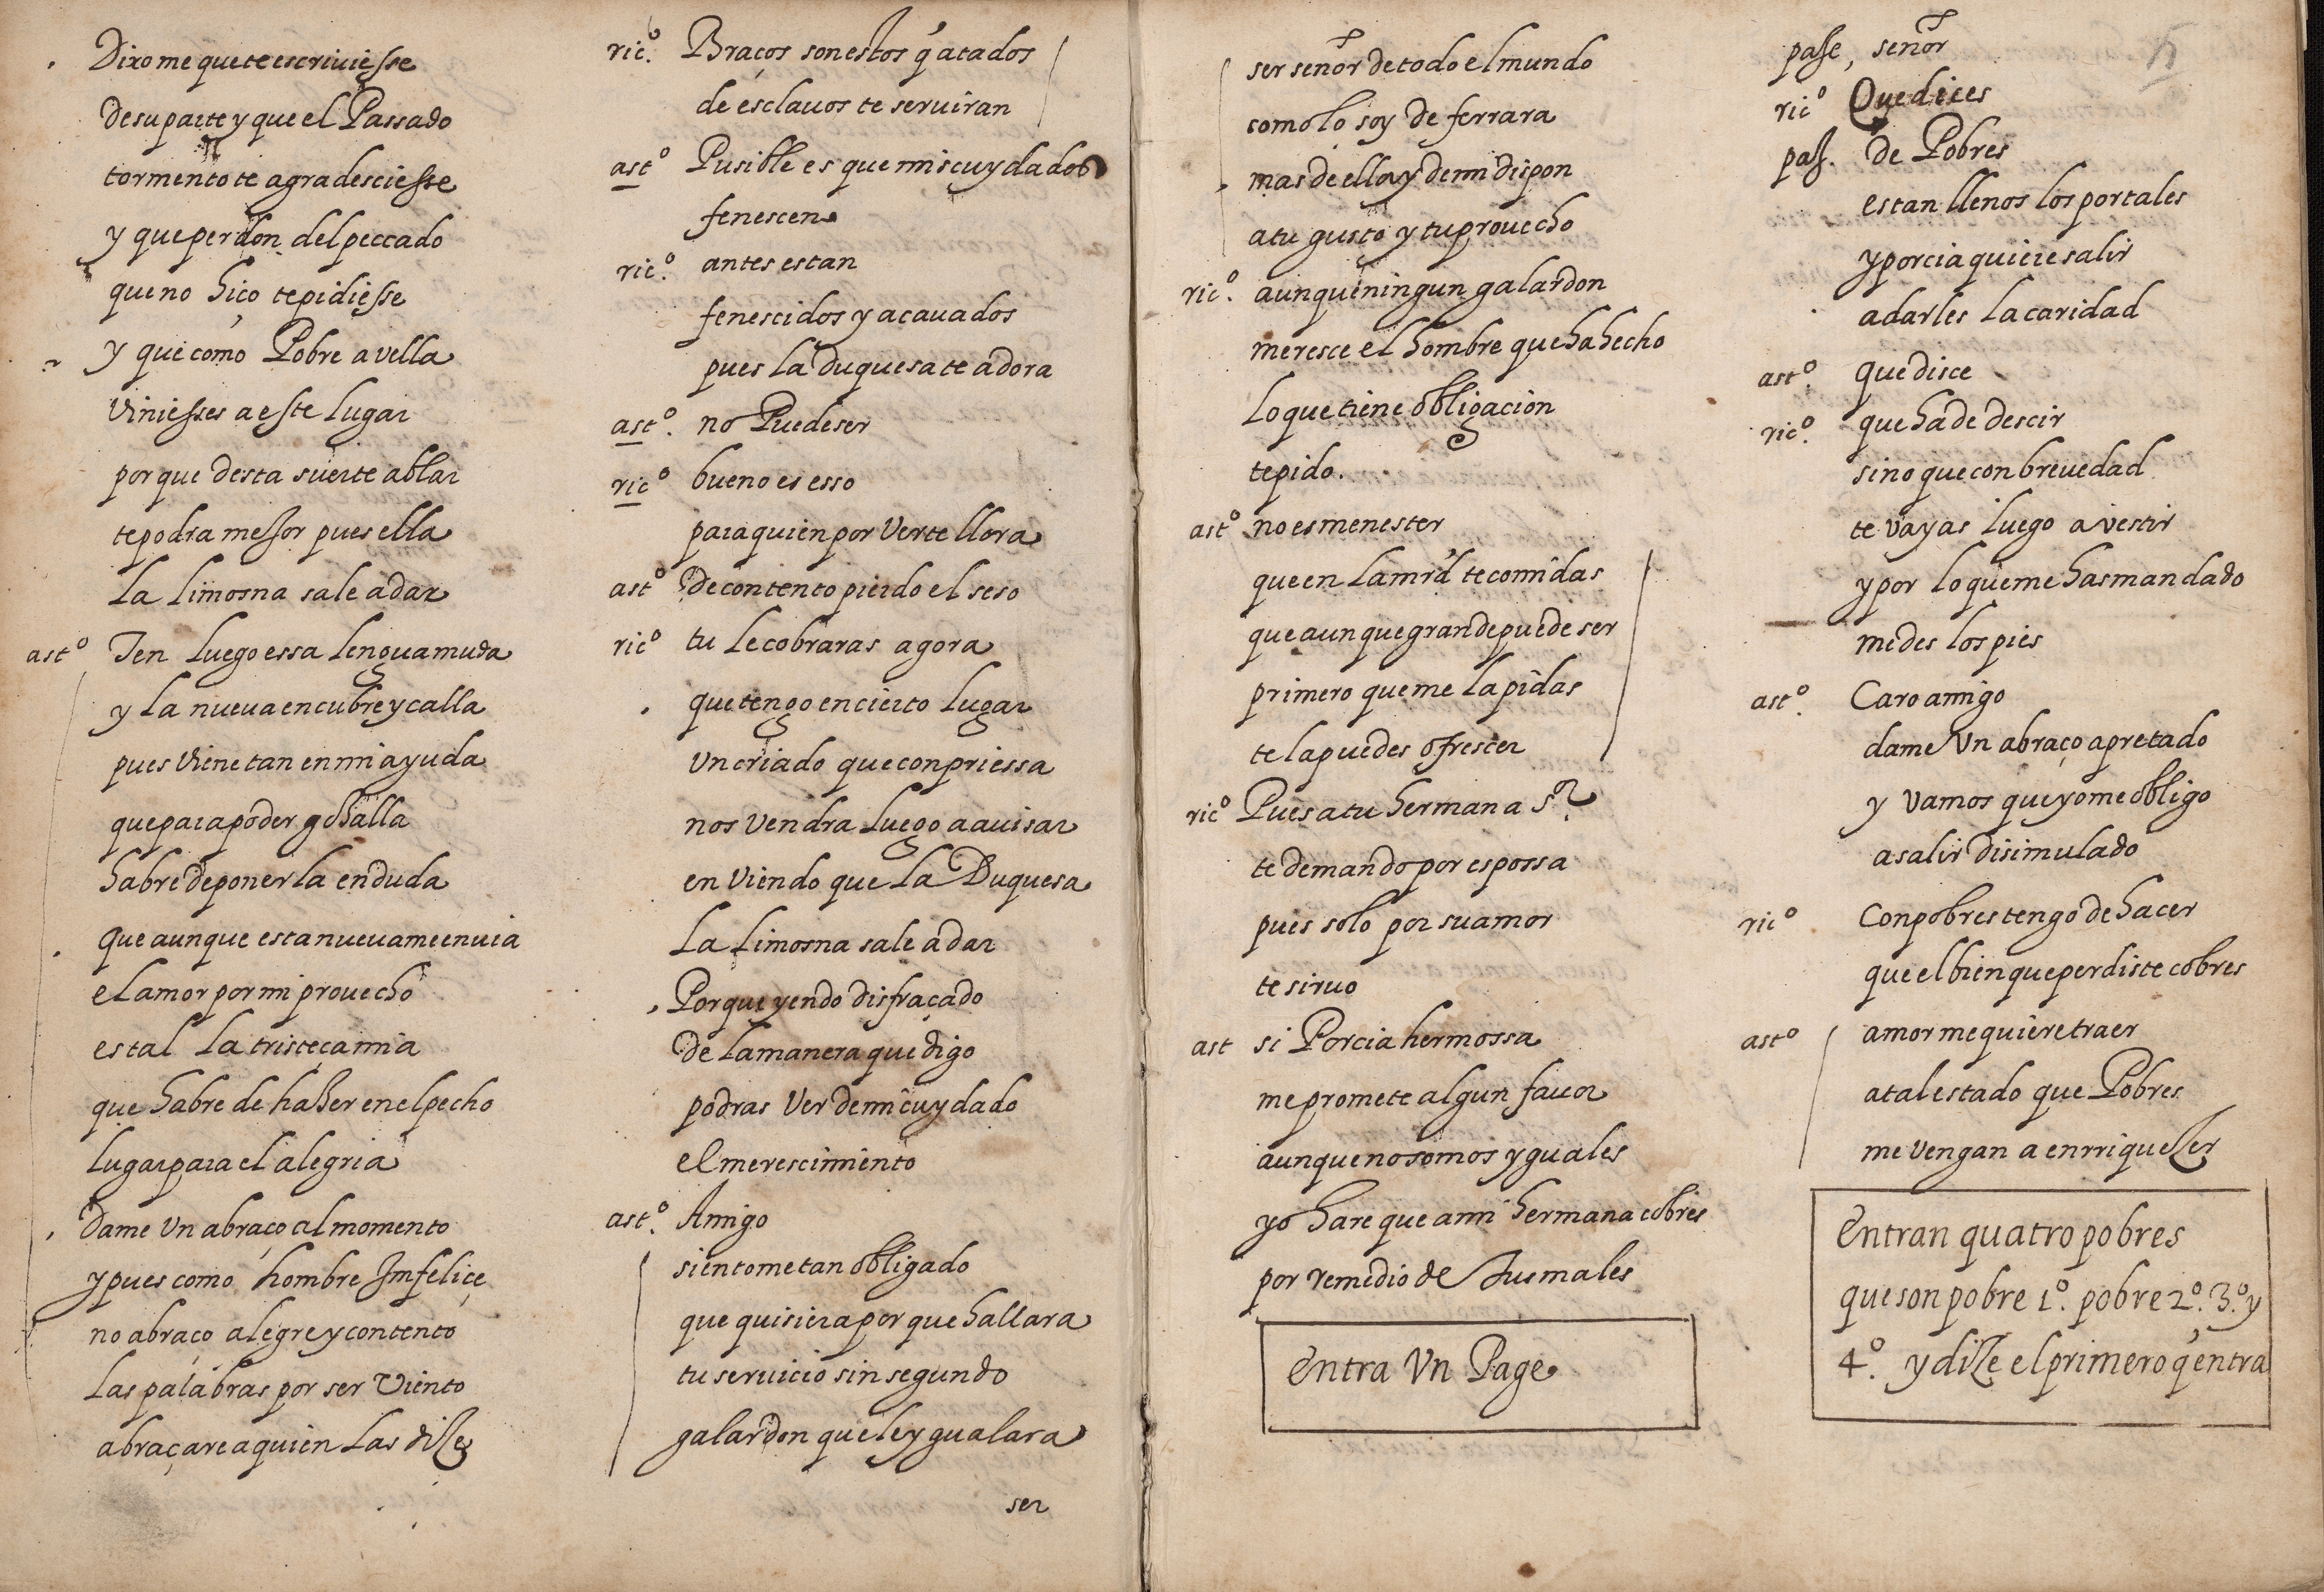 Dixome que te escriviesse
de su parte y que el Passado
tormento te agradesciesse
y que perdon del peccado
que no hiço te pidiesse
y que como Pobre a vella
viniesses a este lugar
por que desta suerte ablar
te podra mejor pues ella
la limosna sale a dar
ast.º Ten luego essa lengua muda
y la nueva encubre y calla
pues viene tan en mi ayuda
que para poder goҫalla
habre de ponerla en duda
que aunque esta nueva me envia
el amor por mi provecho
es tal la tristeça mia
que habre de haҫer en el pecho
lugar para el alegria
Dame un abraço al momento
y pues como hombre Imfeliçe
no abraço alegre y contento
las palabras por ser viento
abraçare a quien las dize
ric.º Braços son estos q̃ atados
de esclavos te serviran
ast.º Pusible es que mis cuydados
fenescen
ric.º antes estan
fenescidos y acavados
pues la duquesa te adora
ast.º no Puede ser
ric.º bueno es esso
para quien por verte llora
ast.º De contento pierdo el seso
ric.º tu le cobraras agora
que tengo en cierto lugar
un criado que con priessa
nos vendra luego a avisar
en viendo que la Duquesa
la limosna sale a dar
Porque yendo disfraçado
de la manera que digo
podras ver de mi cuydado
el merescimiento
ast.º Amigo
sientome tan obligado
que quisiera por que hallara
tu servicio sin segundo
galardon que le ygualara
ser
ser señor de todo el mundo
como lo soy de ferrara
mas de ella y de mi dispon
a tu gusto y tu provecho
ric.º aunque ningun galardon
meresce el hombre que ha hecho
lo que tiene obligacion
te pido.
ast.º no es menester
que en la mrd te comidas
que aunque grande puede ser
primero que me la pidas
te la puedes ofrescer
ric.º Pues a tu hermana Sr.
te demando por espossa
pues solo por su amor
te sirvo
ast si Porcia hermossa
me promete algun favor
aunque no somos yguales
yo hare que a mi hermana cobres
por remedio de tus males
Entra Un Page
paje, señor
ric.º Que dices
paj. de Pobres
estan llenos los portales
y porcia quiere salir
a darles la caridad
ast.º que disce
ric.º que ha de descir
sino que con brevedad
te vayas luego a vestir
y por lo que me has mandado
me des los pies
ast.º Caro amigo
dame Un abraço apretado
y vamos que yo me obligo
a salir disimulado
ric.º Con pobres tengo de hacer
que el bien que perdiste cobres
ast.º amor me quiere traer
a tal estado que Pobres
me vengan a enrriquezer
Entran quatro pobres
que son pobre 1º. pobre 2º. 3º. y
4º. y dize el primero q̃ entra